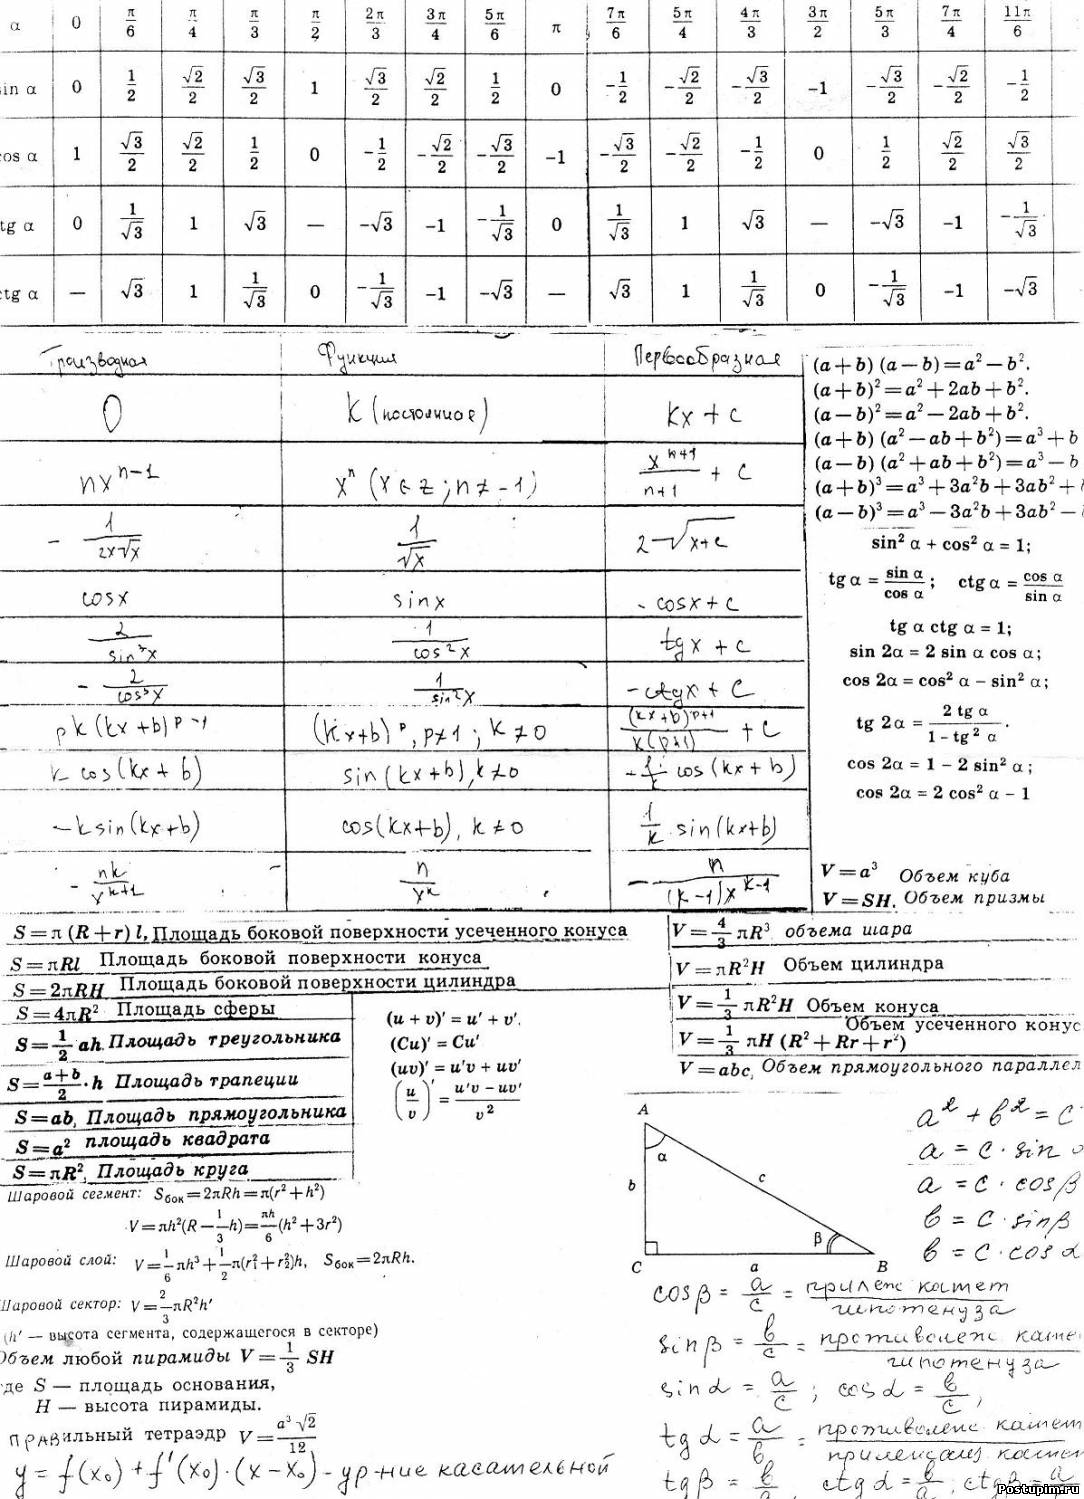 α 0 π/6 π/4 π/3 π/2 2π/3 3π/4 5π/6 π 7π/6 5π/4 4π/3 3π/2 5π/3 7π/4 11π/6
in α 0 1/2 √2/2 √3/2 1 √3/2 √2/2 1/2 0 -1/2 -√2/2 -√3/2 -1 -√3/2 -√2/2 -1/2
os α 1 √3/2 √2/2 1/2 0 -1/2 -√2/2 -√3/2 -1 -√3/2 -√2/2 -1/2 0 1/2 √2/2 √3/2
tg α 0 1/√3 1 √3 — -√3 -1 -1/√3 0 1/√3 1 √3 — -√3 -1 -1/√3
ctg α — √3 1 1/√3 0 -1/√3 -1 -√3 — √3 1 1/√3 0 -1/√3 -1 -√3
Производная Функция Первообразная
0 K (постоянное) kx + c
nxⁿ⁻¹ xⁿ (x ∈ z; n ≠ -1) xⁿ⁺¹/n+1 + c
- 1/2x√x 1/√x 2√x+c
cosx sinx - cosx + c
2/sin³x 1/cos²x tgx + c
- 2/cos³x 1/sin²x -ctgx + C
pk(kx+b)ᵖ⁻¹ (kx+b)ᵖ, p≠1; k ≠0 (kx+b)ᵖ⁺¹/k(p+1) + C
k cos(kx+b) sin(kx+b), k≠0 -1/k cos(kx+b)
-k sin(kx+b) cos(kx+b), k≠0 1/k sin(kx+b)
- nk/xᵏ⁺¹ n/xᵏ - n/(k-1)xᵏ⁻¹
(a+b) (a−b)=a²−b².
(a+b)²=a²+2ab+b².
(a−b)²=a²−2ab+b².
(a+b) (a²−ab+b²)=a³+b
(a−b) (a²+ab+b²)=a³−b
(a+b)³=a³+3a²b+3ab²+
(a−b)³=a³−3a²b+3ab²−
sin² α + cos² α = 1;
tg α = sin α/cos α; ctg α = cos α/sin α
tg α ctg α = 1;
sin 2α = 2 sin α cos α;
cos 2α = cos² α − sin² α;
tg 2α = 2 tg α/1 - tg² α.
cos 2α = 1 − 2 sin² α;
cos 2α = 2 cos² α − 1
V=a³ Объем куба
V=SH. Объем призмы
S=π (R+r) l, Площадь боковой поверхности усеченного конуса
S=πRl Площадь боковой поверхности конуса
S=2πRH Площадь боковой поверхности цилиндра
S=4πR² Площадь сферы
S=1/2 ah. Площадь треугольника
S=a+b/2·h Площадь трапеции
S=ab, Площадь прямоугольника
S=a² площадь квадрата
S=πR², Площадь круга
(u + v)′ = u′ + v′.
(Cu)′ = Cu′
(uv)′ = u′v + uv′
(u/v)′ = u′v − uv′/v²
V=4/3 πR³ объема шара
V=πR²H Объем цилиндра
V=1/3 πR²H Объем конуса
Объем усеченного конус
V=1/3 πH (R²+Rr+r²)
V=abc, Объем прямоугольного параллел
Шаровой сегмент: Sбок=2πRh=π(r²+h²)
V=πh²(R−1/3h)=πh/6(h²+3r²)
Шаровой слой: V=1/6πh³+1/2π(r₁²+r₂²)h, Sбок=2πRh.
Шаровой сектор: V=2/3πR²h′
(h′ — высота сегмента, содержащегося в секторе)
Объем любой пирамиды V=1/3 SH
де S — площадь основания,
H — высота пирамиды.
правильный тетраэдр V=a³√2/12
y = f(x₀) + f′(x₀)·(x−x₀) - ур-ние касательной
A
α
b
c
β
C a B
a² + b² = c
a = c · sin
a = c · cosβ
b = c · sinβ
b = c · cosα
cosβ = a/c = прилежс катет/гипотенуза
sinβ = b/c = противолежс кате/гипотенуза
sinα = a/c; cosα = b/c,
tgα = a/b = противолежс катет/прилежащ катет
tgβ = b/a, ctgα = b/a, ctgβ = a
Postupim.ru